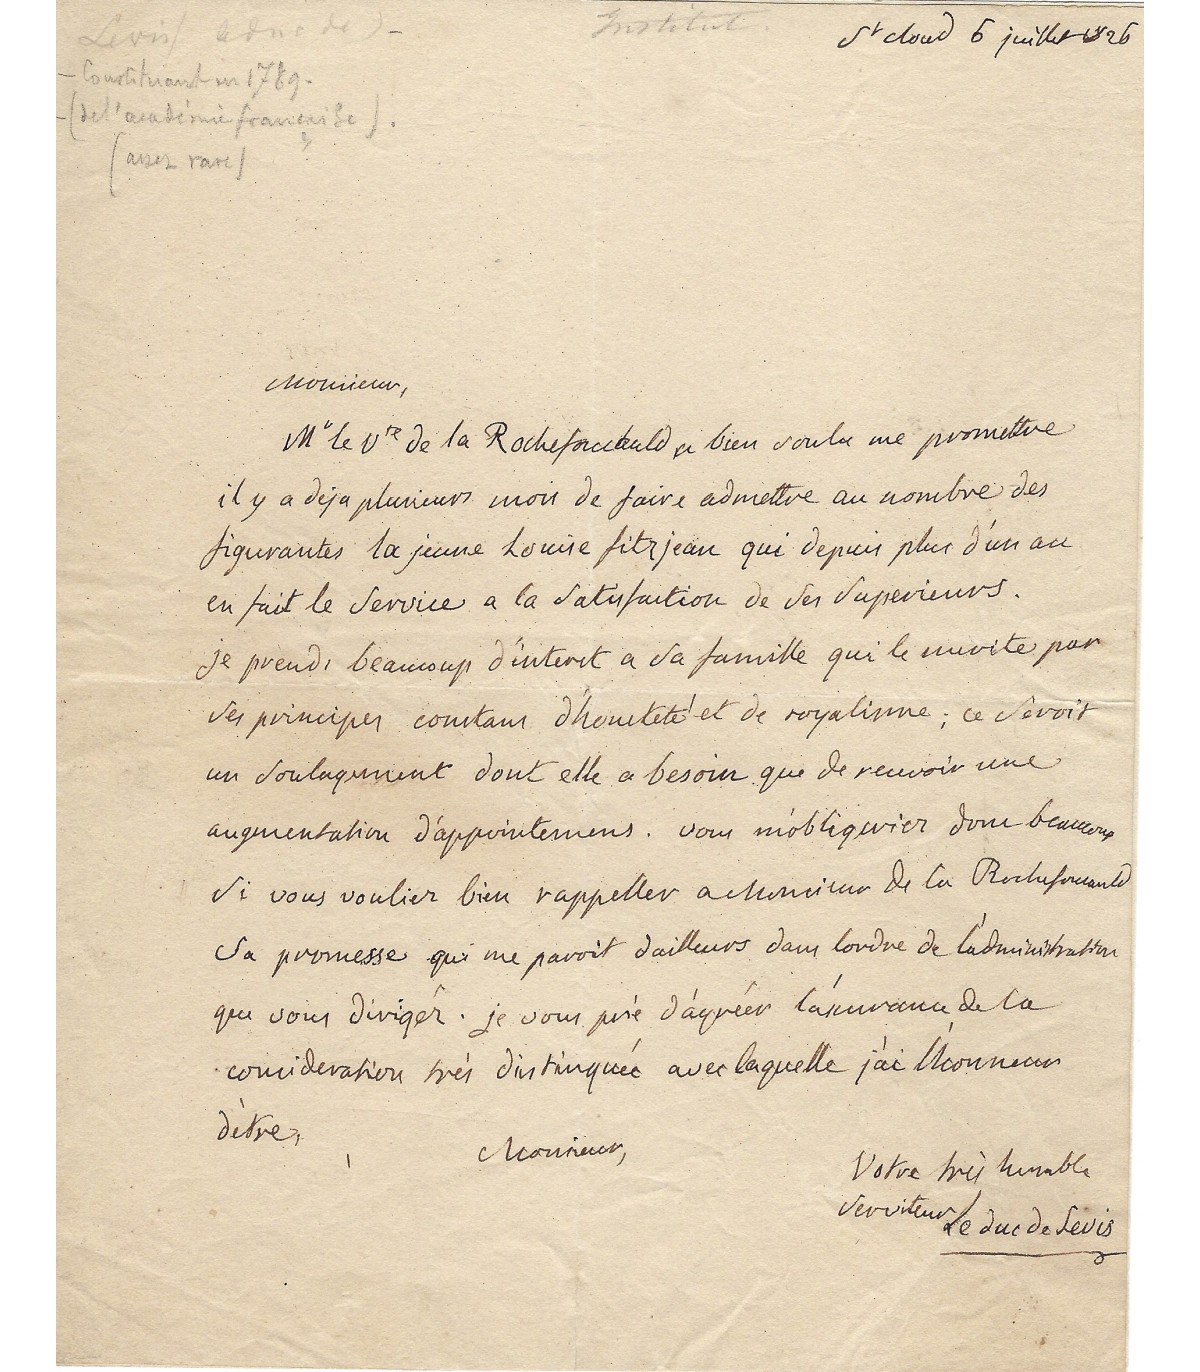 Levis (duc de) -
Institut.
St cloud 6 juillet 1826
- Constituant en 1789.
- (de l'académie française).
(assez rare)
Monsieur,
Mr le Vte de la Rochefoucauld a bien voulu me promettre
il y a deja plusieurs mois de faire admettre au nombre des
figurantes la jeune Louise fitzjean qui depuis plus d'un an
en fait le service a la satisfaction de ses superieurs.
je prends beaucoup d'interet a sa famille qui le merite par
ses principes constans d'honeteté et de royalisme; ce seroit
un soulagement dont elle a besoin que de recevoir une
augmentation d'appointemens. vous m'obligeriez donc beaucoup
si vous vouliez bien rappeller a Monsieur de la Rochefoucauld
sa promesse qui me paroit dailleurs dans lordre de l'administration
que vous dirigéz. je vous prie d'agréer l'assurance de la
consideration très distinquée avec laquelle j'ai l'honneur
d'etre,
Monsieur,
Votre très humble
serviteur
Le duc de Levis